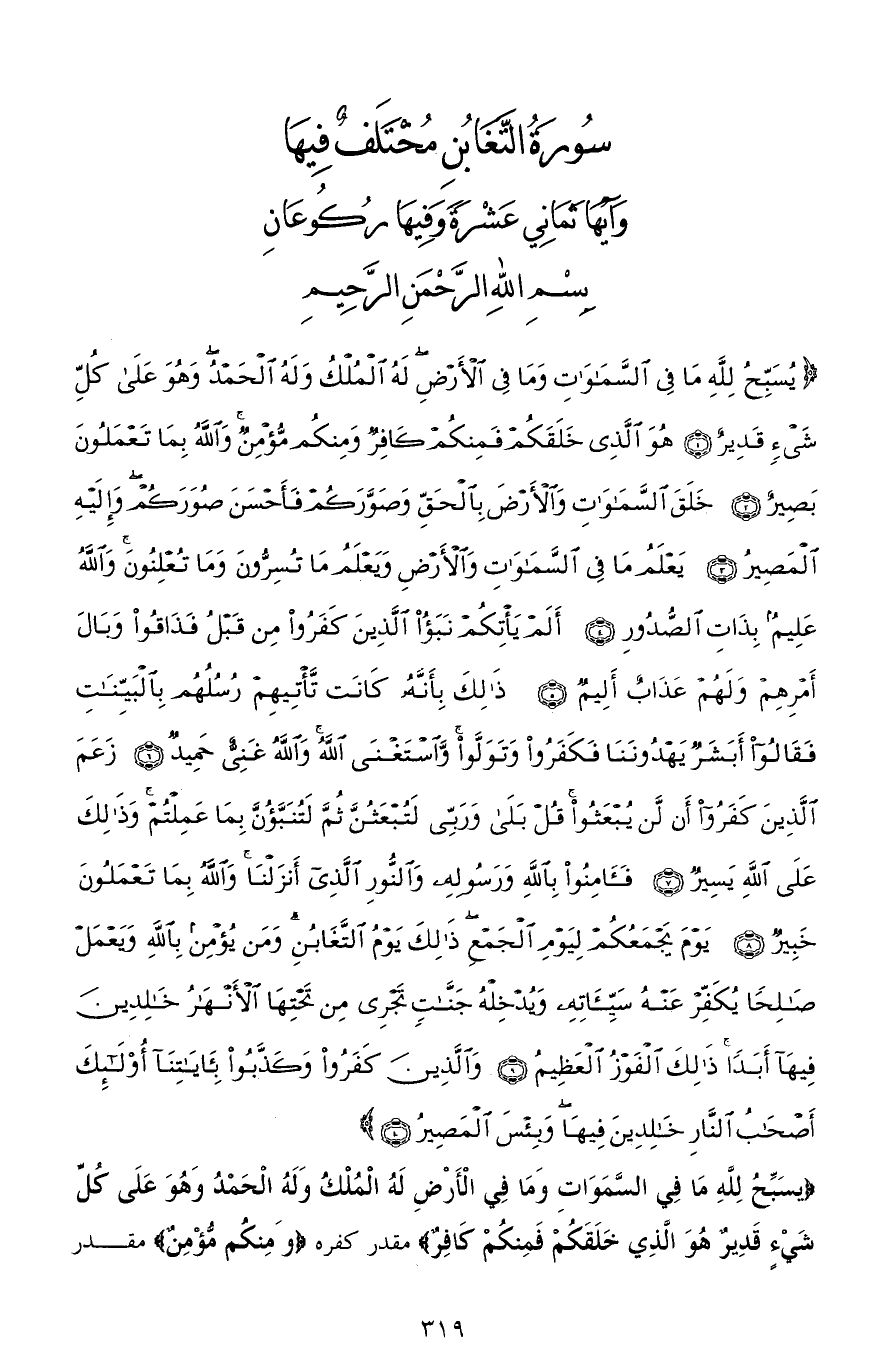 سُورَةُ التَّغَابُنِ مُخْتَلَفٌ فِيهَا
وَآيُهَا ثَمَانِي عَشْرَةَ وَفِيهَا رُكُوعَانِ
بِسْمِ اللهِ الرَّحْمَنِ الرَّحِيمِ
﴿ يُسَبِّحُ لِلَّهِ مَا فِى ٱلسَّمَـٰوَٰتِ وَمَا فِى ٱلْأَرْضِ ۖ لَهُ ٱلْمُلْكُ وَلَهُ ٱلْحَمْدُ ۖ وَهُوَ عَلَىٰ كُلِّ
شَىْءٍ قَدِيرٌ ۝١ هُوَ ٱلَّذِى خَلَقَكُمْ فَمِنكُمْ كَافِرٌ وَمِنكُم مُّؤْمِنٌ ۚ وَٱللَّهُ بِمَا تَعْمَلُونَ
بَصِيرٌ ۝٢ خَلَقَ ٱلسَّمَـٰوَٰتِ وَٱلْأَرْضَ بِٱلْحَقِّ وَصَوَّرَكُمْ فَأَحْسَنَ صُوَرَكُمْ ۖ وَإِلَيْهِ
ٱلْمَصِيرُ ۝٣ يَعْلَمُ مَا فِى ٱلسَّمَـٰوَٰتِ وَٱلْأَرْضِ وَيَعْلَمُ مَا تُسِرُّونَ وَمَا تُعْلِنُونَ ۚ وَٱللَّهُ
عَلِيمٌۢ بِذَاتِ ٱلصُّدُورِ ۝٤ أَلَمْ يَأْتِكُمْ نَبَؤُا۟ ٱلَّذِينَ كَفَرُوا۟ مِن قَبْلُ فَذَاقُوا۟ وَبَالَ
أَمْرِهِمْ وَلَهُمْ عَذَابٌ أَلِيمٌ ۝٥ ذَٰلِكَ بِأَنَّهُۥ كَانَت تَّأْتِيهِمْ رُسُلُهُم بِٱلْبَيِّنَـٰتِ
فَقَالُوٓا۟ أَبَشَرٌ يَهْدُونَنَا فَكَفَرُوا۟ وَتَوَلَّوا۟ ۚ وَّٱسْتَغْنَى ٱللَّهُ ۚ وَٱللَّهُ غَنِىٌّ حَمِيدٌ ۝٦ زَعَمَ
ٱلَّذِينَ كَفَرُوٓا۟ أَن لَّن يُبْعَثُوا۟ ۚ قُلْ بَلَىٰ وَرَبِّى لَتُبْعَثُنَّ ثُمَّ لَتُنَبَّؤُنَّ بِمَا عَمِلْتُمْ ۚ وَذَٰلِكَ
عَلَى ٱللَّهِ يَسِيرٌ ۝٧ فَـَٔامِنُوا۟ بِٱللَّهِ وَرَسُولِهِۦ وَٱلنُّورِ ٱلَّذِىٓ أَنزَلْنَا ۚ وَٱللَّهُ بِمَا تَعْمَلُونَ
خَبِيرٌ ۝٨ يَوْمَ يَجْمَعُكُمْ لِيَوْمِ ٱلْجَمْعِ ۖ ذَٰلِكَ يَوْمُ ٱلتَّغَابُنِ ۗ وَمَن يُؤْمِنۢ بِٱللَّهِ وَيَعْمَلْ
صَـٰلِحًا يُكَفِّرْ عَنْهُ سَيِّـَٔاتِهِۦ وَيُدْخِلْهُ جَنَّـٰتٍ تَجْرِى مِن تَحْتِهَا ٱلْأَنْهَـٰرُ خَـٰلِدِينَ
فِيهَآ أَبَدًا ۚ ذَٰلِكَ ٱلْفَوْزُ ٱلْعَظِيمُ ۝٩ وَٱلَّذِينَ كَفَرُوا۟ وَكَذَّبُوا۟ بِـَٔايَـٰتِنَآ أُو۟لَـٰٓئِكَ
أَصْحَـٰبُ ٱلنَّارِ خَـٰلِدِينَ فِيهَا ۖ وَبِئْسَ ٱلْمَصِيرُ ۝١٠ ﴾
﴿يسَبِّحُ لِلَّهِ مَا فِي السَّمَوَاتِ وَمَا فِي الْأَرْضِ لَهُ الْمُلْكُ وَلَهُ الْحَمْدُ وَهُوَ عَلَى كُلِّ
شَيْءٍ قَدِيرٌ هُوَ الَّذِي خَلَقَكُمْ فَمِنكُمْ كَافِرٌ﴾ مقدر كفره ﴿وَمِنكُم مُّؤْمِنٌ﴾ مقـــدر
٣١٩